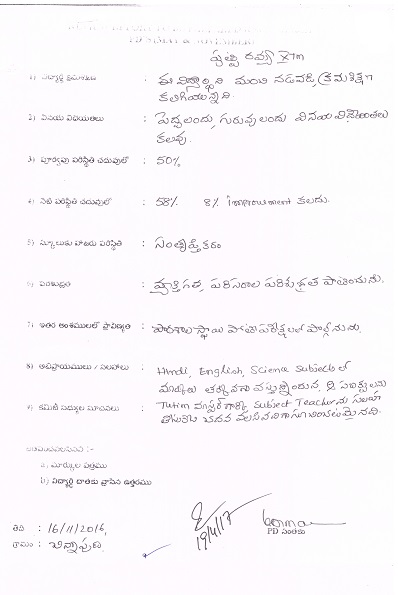 X Tm
1) విద్యార్థి క్రమశిక్షణ : ఈ విద్యార్థిని మంచి నడవడి, క్రమశిక్షణ
కలిగియున్నది.
2) వినయ విధేయతలు : పెద్దలందు, గురువులందు వినయ విధేయతలు
కలవు.
3) పూర్వపు పరిస్థితి చదువులో : 50%
4) నేటి పరిస్థితి చదువులో : 58% 8% Improvement కలదు.
5) స్కూలుకు హాజరు పరిస్థితి : సంతృప్తికరం
6) పరిశుభ్రత : వ్యక్తిగత, పరిసరాల పరిశుభ్రత పాటించును.
7) ఇతర అంశములలో ప్రావీణ్యత : పాఠశాల స్థాయి పోటీ పరీక్షలలో పాల్గొనును.
8) అభిప్రాయములు / సలహాలు : Hindi, English, Science Subjects లో
మార్కులు తక్కువగా వస్తున్నందున, ఆ సబ్జెక్టులను
9) కమిటి సభ్యుల సూచనలు : Tution మాస్టర్ గార్కి, Subject Teacher ను సలహా
a) మార్కుల పత్రము
b) విద్యార్థి దాతకు వ్రాసిన ఉత్తరము
తేది : 16/11/2016,
గ్రామం :
19/4/17
PD సంతకం